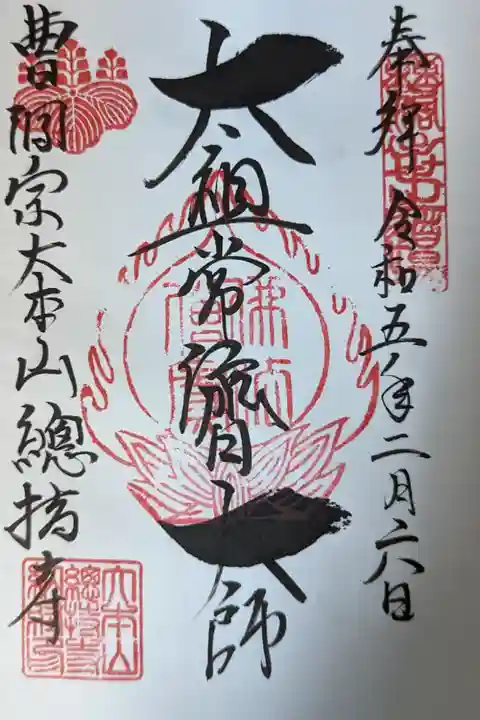 奉拝 令和五年二月六日
太祖常濟大師
曹洞宗大本山總持寺
佛法僧寶
大本山總持寺